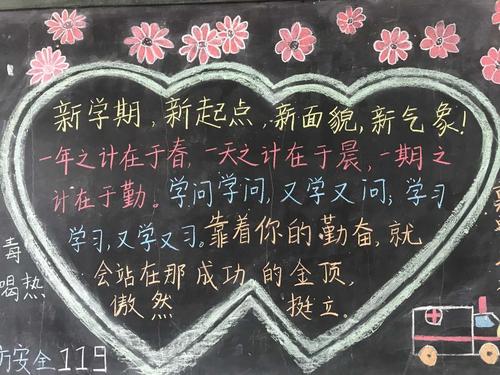 新学期，新起点，新面貌，新气象！
一年之计在于春，一天之计在于晨，一期之
计在于勤。学问学问，又学又问；学习
学习，又学又习。靠着你的勤奋，就
会站在那成功的金顶，
傲然挺立。
毒
喝热
安全119